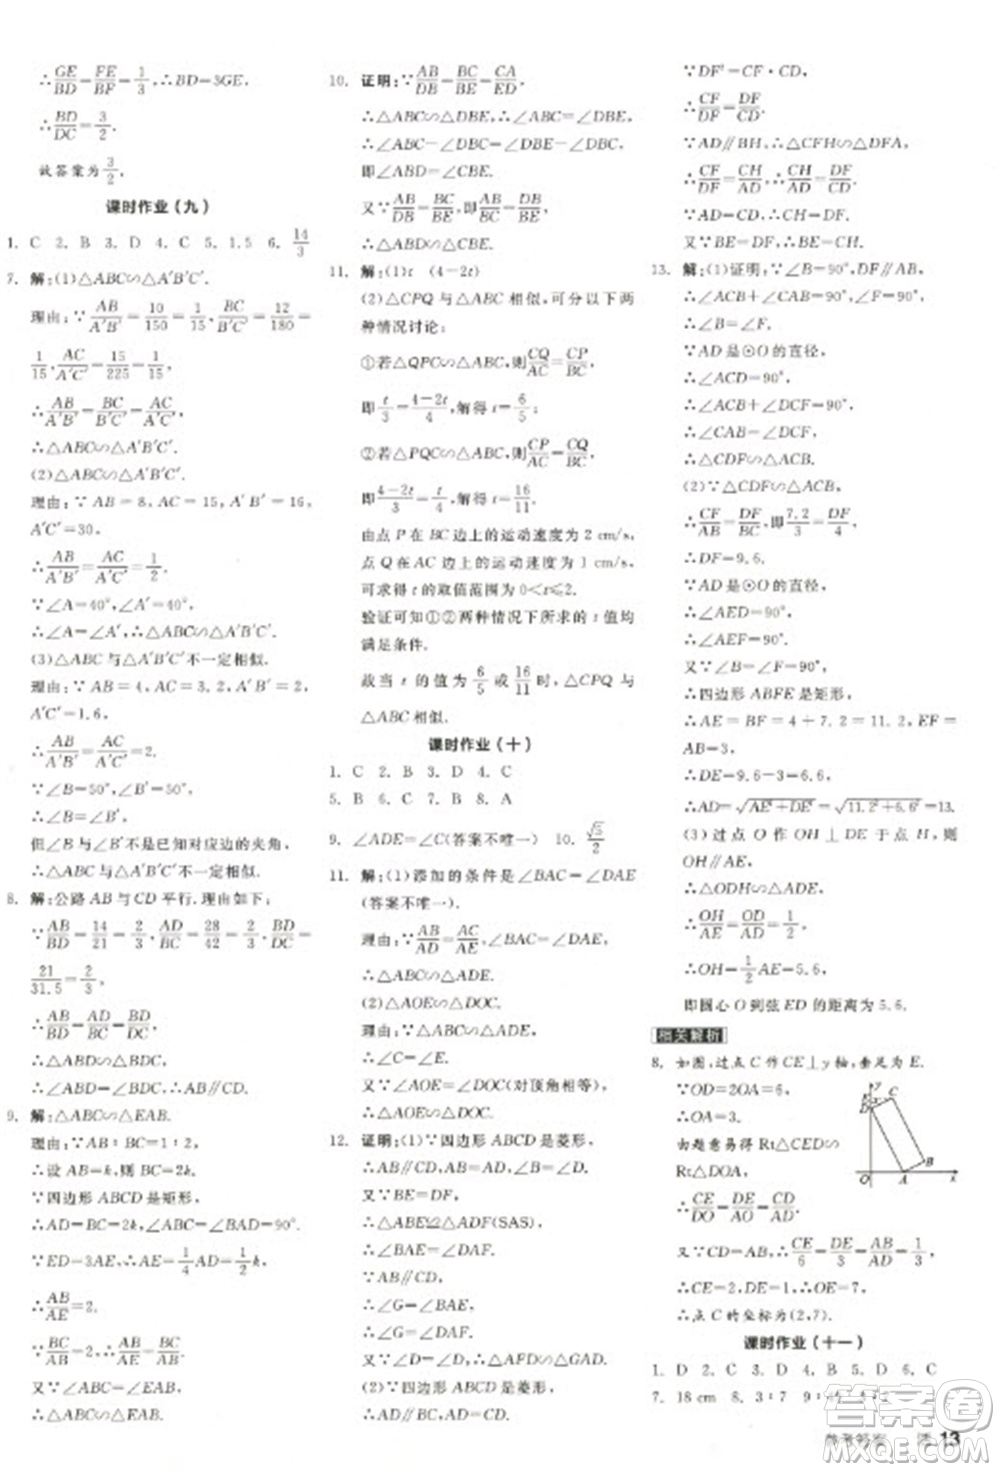 ∴GE/BD=FE/BF=1/3,∴BD=3GE.
∴BD/DC=3/2.
故答案为3/2.
课时作业(九)
1. C 2. B 3. D 4. C 5. 1.5 6. 14/3
7. 解:(1)△ABC∽△A′B′C′.
理由:∵AB/A′B′=10/150=1/15,BC/B′C′=12/180=
1/15,AC/A′C′=15/225=1/15,
∴AB/A′B′=BC/B′C′=AC/A′C′,
∴△ABC∽△A′B′C′.
(2)△ABC∽△A′B′C′.
理由:∵AB=8,AC=15,A′B′=16,
A′C′=30,
∴AB/A′B′=AC/A′C′=1/2.
∵∠A=40°,∠A′=40°,
∴∠A=∠A′,∴△ABC∽△A′B′C′.
(3)△ABC与△A′B′C′不一定相似.
理由:∵AB=4,AC=3.2,A′B′=2,
A′C′=1.6,
∴AB/A′B′=AC/A′C′=2.
∵∠B=50°,∠B′=50°,
∴∠B=∠B′,
但∠B与∠B′不是对应边的夹角,
∴△ABC与△A′B′C′不一定相似.
8. 解:公路AB与CD平行.理由如下:
∵AB/BD=14/21=2/3,AD/BC=28/42=2/3,BD/DC=
21/31.5=2/3,
∴AB/BD=AD/BC=BD/DC,
∴△ABD∽△BDC,
∴∠ABD=∠BDC,∴AB∥DC.
9. 解:△ABC∽△EAB.
理由:∵AB∶BC=1∶2,
∴设AB=k,则BC=2k.
∵四边形ABCD是矩形,
∴AD=BC=2k,∠ABC=∠BAD=90°.
∵ED=3AE,∴AE=1/4AD=1/2k,
∴AB/AE=2.
∵BC/AB=2,∴BC/AB=AB/AE.
又∵∠ABC=∠EAB,
∴△ABC∽△EAB.
10. 证明:∵AB/DB=BC/BE=CA/ED,
∴△ABC∽△DBE,∴∠ABC=∠DBE,
∴∠ABC-∠DBC=∠DBE-∠DBC,
即∠ABD=∠CBE.
又∵AB/DB=BC/BE,即AB/BC=DB/BE,
∴△ABD∽△CBE.
11. 解:(1)t (4-2t)
(2)△CPQ与△ABC相似,可分以下两
种情况讨论:
①若△QPC∽△ABC,则CQ/AC=CP/BC,
即t/3=4-2t/4,解得t=6/5;
②若△PQC∽△ABC,则CP/AC=CQ/BC,
即4-2t/3=t/4,解得t=16/11.
由点P在BC边上的运动速度为2 cm/s,
点Q在AC边上的运动速度为1 cm/s,
可求得t的取值范围为0<t≤2.
验证可知①②两种情况下所求的t值均
满足条件.
故当t的值为6/5或16/11时,△CPQ与
△ABC相似.
课时作业(十)
1. C 2. B 3. D 4. C
5. B 6. C 7. B 8. A
9. ∠ADE=∠C(答案不唯一) 10. √5/2
11. 解:(1)添加的条件是∠BAC=∠DAE
(答案不唯一).
理由:∵AB/AD=AC/AE,∠BAC=∠DAE,
∴△ABC∽△ADE.
(2)△AOE∽△DOC.
理由:∵△ABC∽△ADE,∴∠C=∠E.
又∵∠AOE=∠DOC(对顶角相等),
∴△AOE∽△DOC.
12. 证明:(1)∵四边形ABCD是菱形,
∴AB=AD,∠B=∠D.
又∵BE=DF,
∴△ABE≌△ADF(SAS),
∴∠BAE=∠DAF.
∵AB∥CD,
∴∠G=∠BAE,
∴∠G=∠DAF.
又∵∠D=∠D,∴△ADF∽△GDA.
(2)∵四边形ABCD是菱形,
∴BC=CD,AD∥BH.
∵DF²=CF·CD,
∴CF/DF=DF/CD.
∵AD∥BH,∴△CFH∽△DFA,
∴CF/DF=CH/DA,∴CH/DA=DF/CD.
又∵DA=CD,∴CH=DF.
又∵BE=DF,∴BE=CH.
13. 解:(1)证明:∵∠B=90°,DF∥AB,
∴∠ACB+∠CAB=90°,∠F=90°,
∴∠B=∠F.
∵AD是⊙O的直径,
∴∠ACD=90°,
∴∠ACB+∠DCF=90°,
∴∠CAB=∠DCF,
∴△CDF∽△ACB.
(2)∵△CDF∽△ACB,
∴CF/AB=DF/CB,即7.2/3=DF/4,
∴DF=9.6.
∵AD是⊙O的直径,
∴∠AED=90°,
∴∠AEF=90°.
又∵∠B=∠F=90°,
∴四边形ABFE是矩形,
∴AE=BF=4+7.2=11.2,EF=
AB=3,
∴DE=9.6-3=6.6,
∴AD=√AE²+DE²=√11.2²+6.6²=13.
(3)过点O作OH⊥DE于点H,则
OH∥AE,
∴△ODH∽△ADE,
∴OH/AE=OD/AD=1/2,
∴OH=1/2AE=5.6,
即圆心O到弦ED的距离为5.6.
相关解析
8. 如图,过点C作CE⊥y轴,垂足为E.
∵OD=2OA=6,
∴OA=3.
由题意易得Rt△CED∽
Rt△DOA,
∴CE/DO=DE/AO=CD/AD=1/3,
∴CE/6=DE/3=1/3,
∴CE=2,DE=1,∴OE=7,
∴点C的坐标为(2,7).
y
E
C
D
B
O
A
x
课时作业(十一)
1. D 2. C 3. D 4. B 5. D 6. C
7. 18 cm 8. 3∶7
参考答案 13
答案圈